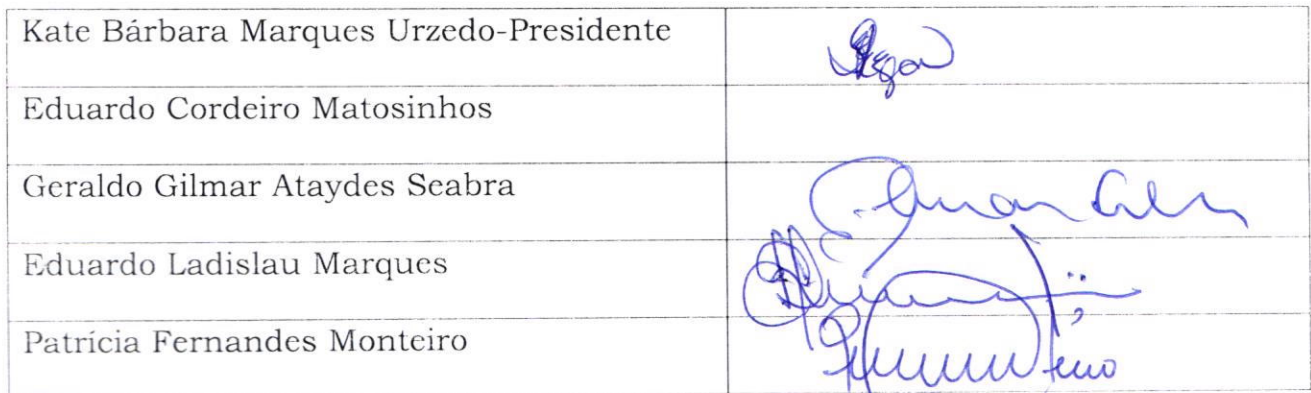 Kate Bárbara Marques Urzedo-Presidente
Eduardo Cordeiro Matosinhos
Geraldo Gilmar Ataydes Seabra
Eduardo Ladislau Marques
Patrícia Fernandes Monteiro